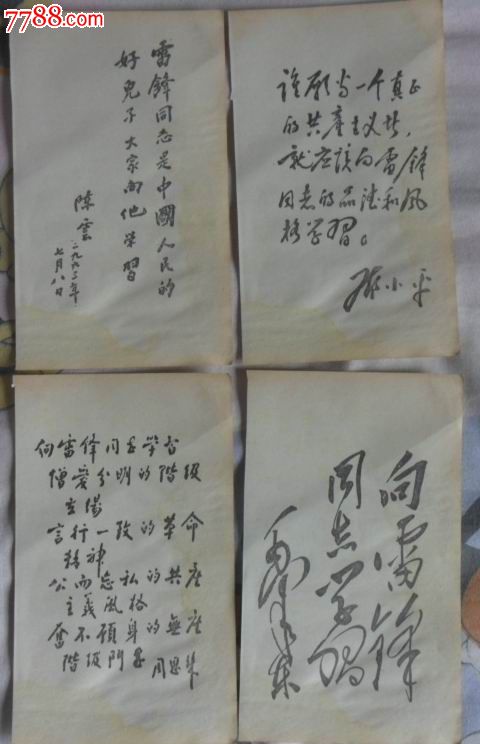 7788.com
雷鋒同志是中國人民的
好兒子大家向他学習
陳雲
一九六三年
七月八日
谁願当一个真正
的共產主义者，
就应該向雷锋
同志的品德和风
格学習。
邓小平
向雷锋同志学習
憎爱分明的階級
立場
言行一致的革命
精神
公而忘私的共産
主義風格
奮不顧身的無産
階級鬥志 周恩来
向雷锋
同志学習
毛泽东